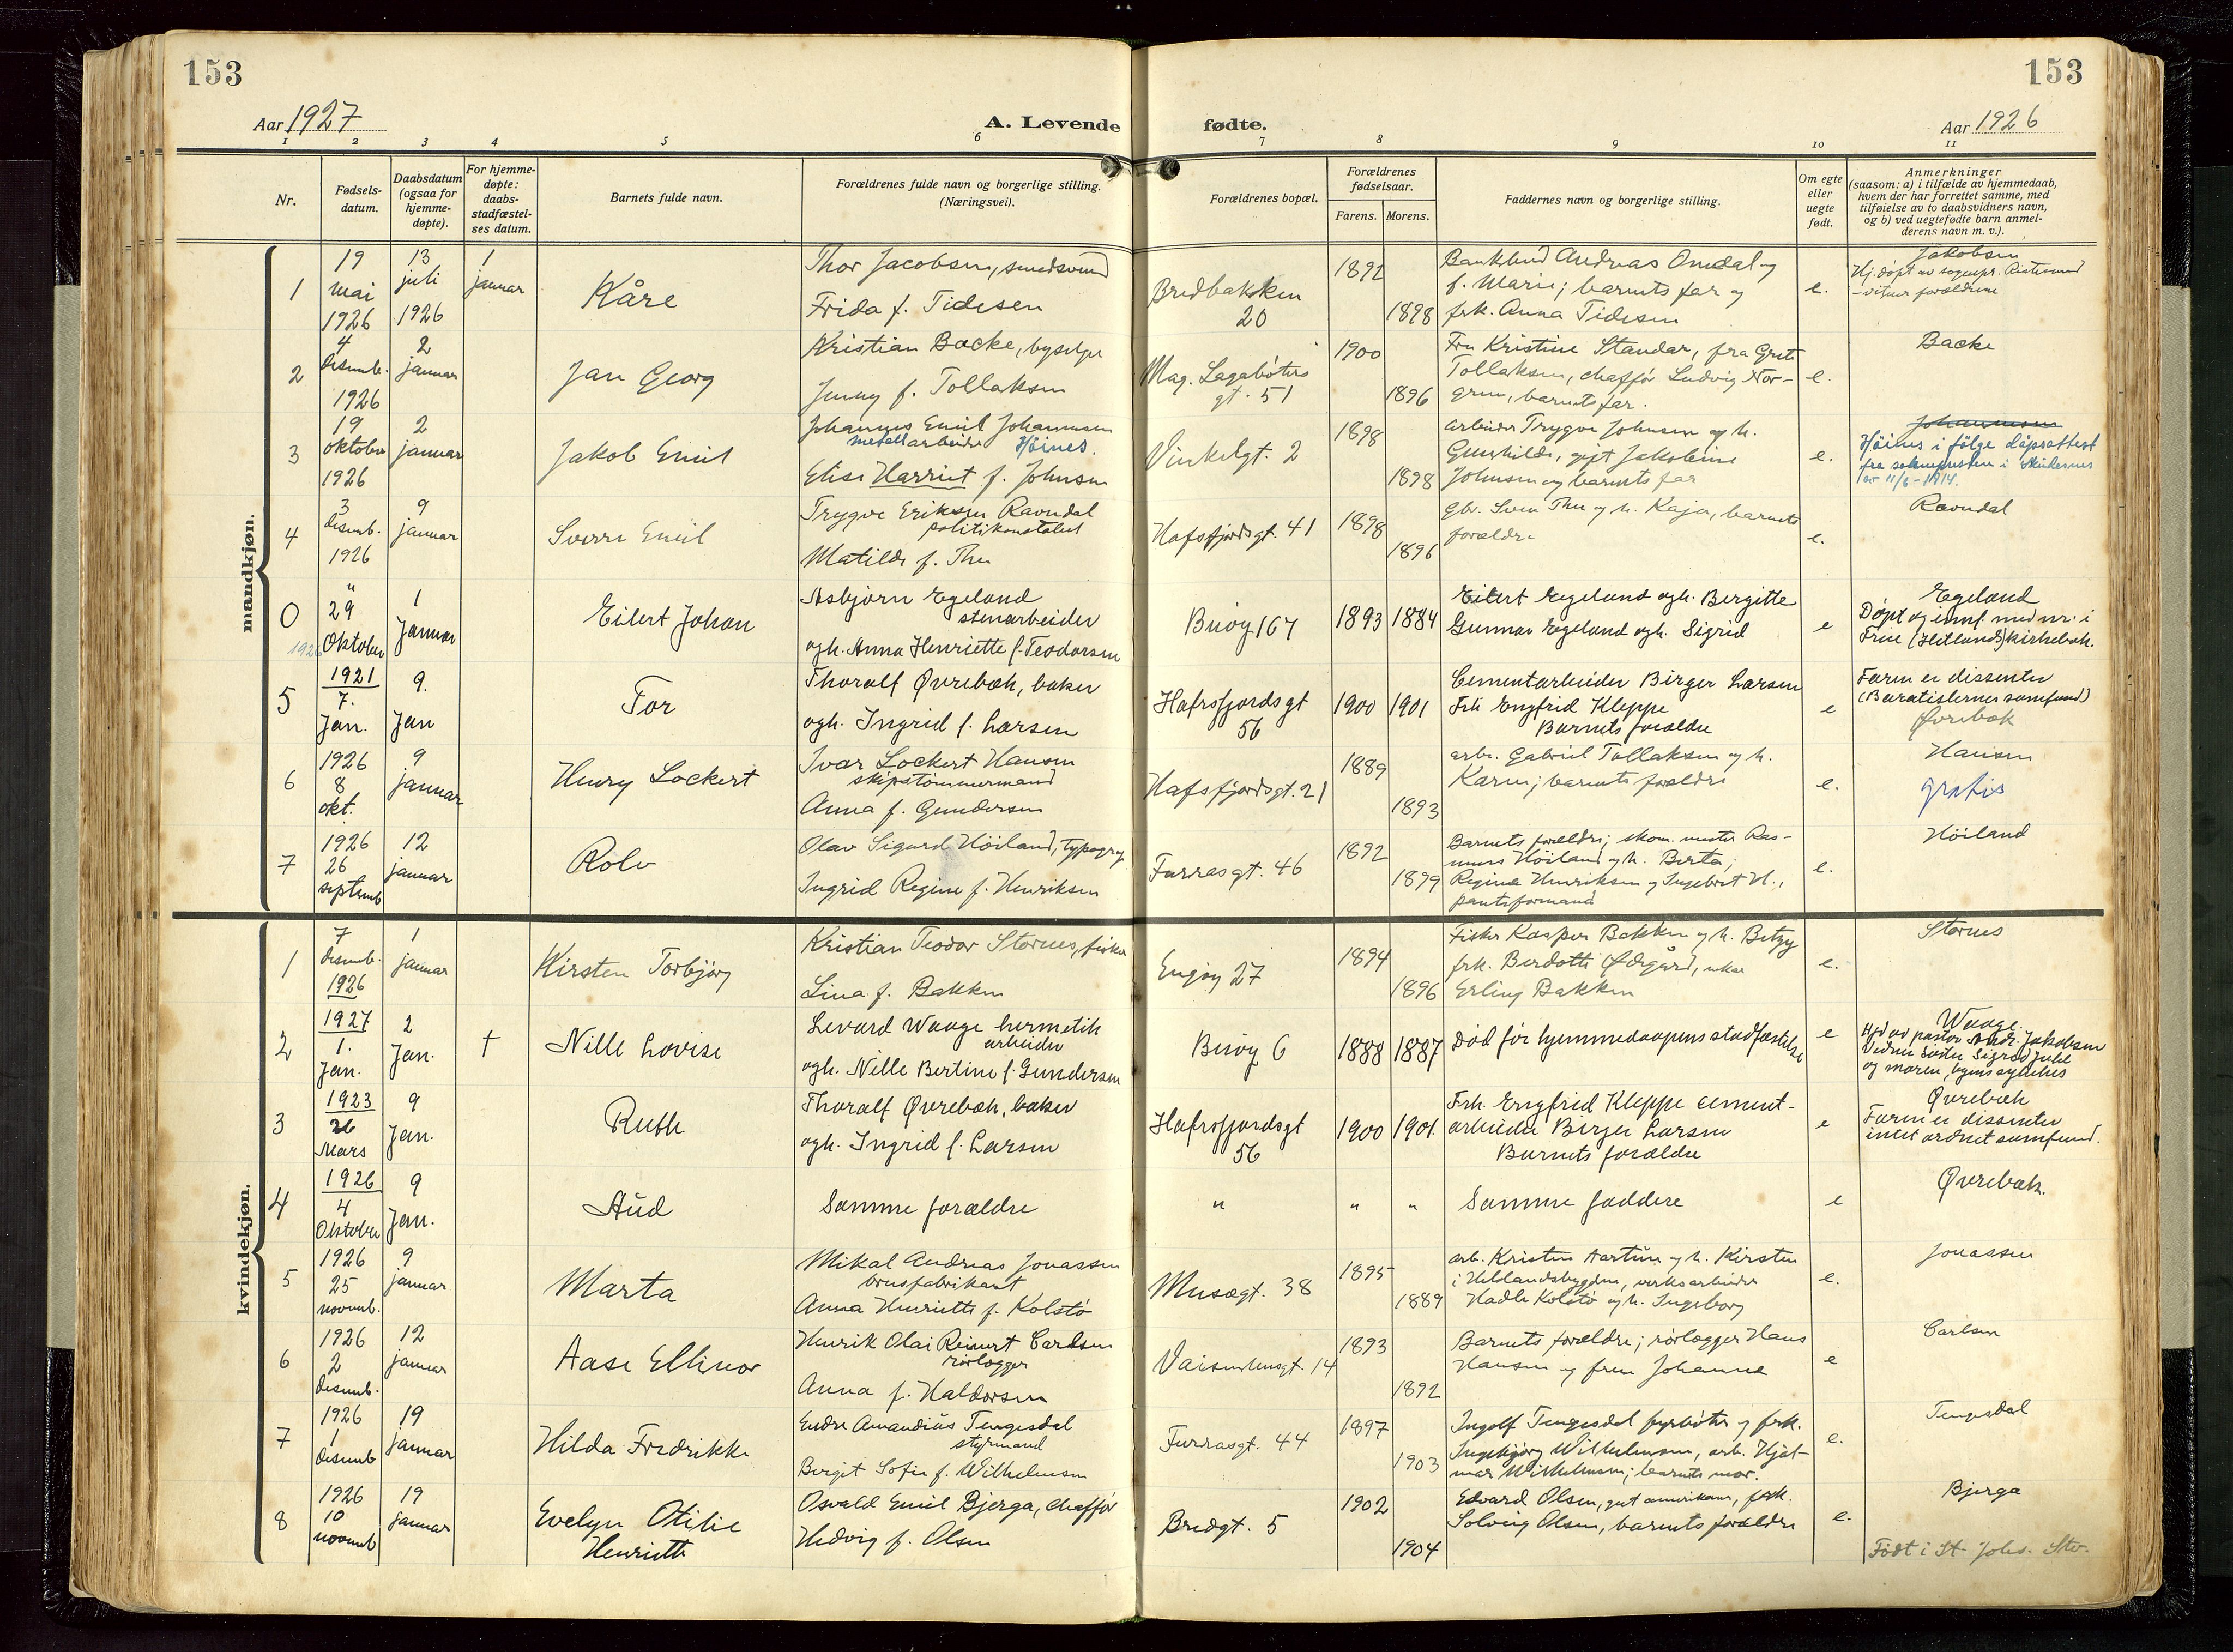 153
153
Aar 1927
A. Levende
fødte.
Aar 1926
1 2 3 4 5 6 7 8 9 10 11
Nr.
Fødsels-
datum.
Daabsdatum
(ogsaa for
hjemme-
døpte).
For hjemme-
døpte:
daabs-
stadfæstel-
ses datum.
Barnets fulde navn.
Forældrenes fulde navn og borgerlige stilling.
(Næringsvei).
Forældrenes bopæl.
Forældrenes
fødselsaar.
Farens. Morens.
Faddernes navn og borgerlige stilling.
Om egte
eller
uegte
født.
Anmerkninger
(saasom: a) i tilfælde av hjemmedaab,
hvem der har forrettet samme, med
tilføielse av to daabsvidners navn,
og b) ved uegtefødte barn anmel-
derens navn m. v.).
mandkjøn.
1
19
mai
1926
13
juli
1926
1
januar
Kåre
Thor Jacobsen, smedsvend
Frida f. Tidesen
Bredbakken
20
1892
1898
Bankbud Andreas Omdal og
f. Marie; barnets far og
frk. Anna Tidesen
e.
Jakobsen
Hj. døpt av sognepr.
- vitner forældrene
2
4
desemb.
1926
2
januar
Jan Georg
Kristian Backe, byselger
Jenny f. Tollaksen
Mag. Lagabøters
gt. 51
1900
1896
Fru Kristine Standar, fra Grete
Tollaksen, chaffør Ludvig Nor-
gren, barnets far.
e.
Backe
3
19
oktober
1926
2
januar
Jakob Emil
Johannes Emil Johannesen
metallarbeider Høines.
Elise Harriet f. Johnsen
Vinkelgt. 2
1898
1898
arbeider Trygve Johnsen og h.
Gunhilde, gift Jakobine
Johnsen og barnets far
e.
Johannesen
Høines i følge dåpsattest
fra soknepresten i Skudesnes
av 11/6 - 1914.
4
3
desemb.
1926
9
januar
Sverre Emil
Trygve Eriksen Ravndal
politikonstabel
Matilde f. Thu
Hafsfjordsgt. 41
1898
1896
Gbr. Sven Thu og h. Kaja, barnets
forældre
e.
Ravndal
0
"
29
Oktober
1926
1
Januar
Eilert Johan
Asbjørn Egeland
stenarbeider
ogh. Anna Henriette f. Teodorsen
Buøy 167
1893
1884
Eilert Egeland ogh. Bergitte
Gunnar Egeland ogh. Sigrid
e
Egeland
Døpt og innf. med nr. i
Frue (Hetlands) kirkebok.
5
1921
7.
Jan.
9.
Jan
Tor
Thoralf Øvrebæk, baker
ogh. Ingrid f. Larsen
Hafrsfjordsgt
56
1900
1901
Cementarbeider Birger Larsen
Frk Engfrid Kleppe
Barnets forældre
e
Faren er dissenter
(Baratisternes samfund)
Øvrebæk
6
1926
8
okt.
9
januar
Henry Lockert
Ivar Lockert Hansen
skipstømmermand
Anna f. Gundersen
Hafsfjordsgt. 21
1889
1893
arb. Gabriel Tollaksen og h.
Karen; barnets forældre
e.
Hansen
gratis
7
1926
26
septemb
12
januar
Rolv
Olav Sigurd Høiland, typograf
Ingrid Regine f. Henriksen
Furrasgt. 46
1892
1899
Barnets forældre; skom. mester Ras-
mus Høiland og h. Berta;
Regine Henriksen og Ingebert H.,
e.
Høiland
kvindekjøn.
1
7
desemb.
1926
1
januar
Kirsten Torbjørg
Kristian Teodor Stornes, fisker
Lina f. Bakken
Engøy 27
1894
1896
Fisker Kasper Bakken og h. Betzy
frk. Berdotte Ødegård, enkem.
Erling Bakken
e.
Stornes
2
1927
1.
Jan.
2
Jan.
†
Nille Lovise
Levard Waage hermetik
arbeider
ogh. Nille Bertine f. Gundersen
Buøy 6
1888
1887
Død før hjemmedaapens stadfæstelse
e
Waage.
Hjd av pastor Andr. Jakobsen
Vidner søster Sigrid Juhl
og moren, byens sykehus
3
1923
26
Mars
9
Jan.
Ruth
Thoralf Øvrebæk, baker
ogh. Ingrid f. Larsen
Hafrsfjordsgt
56
1900
1901.
Frk. Engfrid Kleppe cement-
arbeider Birger Larsen
Barnets forældre
e
Øvrebæk
Faren er dissenter
intet ordnet samfund.
4
1926
4
Oktober
9
Jan.
Aud
Samme forældre
"
"
"
Samme faddere
e
Øvrebæk.
5
1926
25
novemb.
9
januar
Marta
Mikal Andreas Jonassen
brusfabrikant
Anna Henriette f. Kolstø
Musægt. 38
1895
1889
arb. Kristen Aartun og h. Kirsten
i Hetlandsbygden, verksarbeider
Hadle Kolstø og h. Ingeborg
e.
Jonassen
6
1926
2
desemb.
12
januar
Aase Ellinor
Henrik Olai Reinert Carlsen
rørlegger
Anna f. Haldorsen
Vaisenhusgt. 14
1893
1892
Barnets forældre; rørlegger Hans
Hansen og frue Johanne
e
Carlsen
7
1926
1
desemb
19
januar
Hilda Fredrikke
Endre Amandius Tengesdal
styrmand
Bergit Sofie f. Wilhelmsen
Furrasgt. 44
1897
1903
Ingolf Tengesdal fyrbøter og frk.
Ingebjørg Wilhelmsen, arb. Hjal-
mar Wilhelmsen; barnets mor.
e.
Tengesdal
8
1926
10
novemb
19
januar
Evelyn Otilie
Henriette
Osvald Emil Bjerga, chaffør
Hedvig f. Olsen
Bredgt. 5
1902
1904
Edvard Olsen, gut amerikaner, frk.
Solveig Olsen, barnets forældre
e.
Bjerga
Født i St. Johs. Stv.